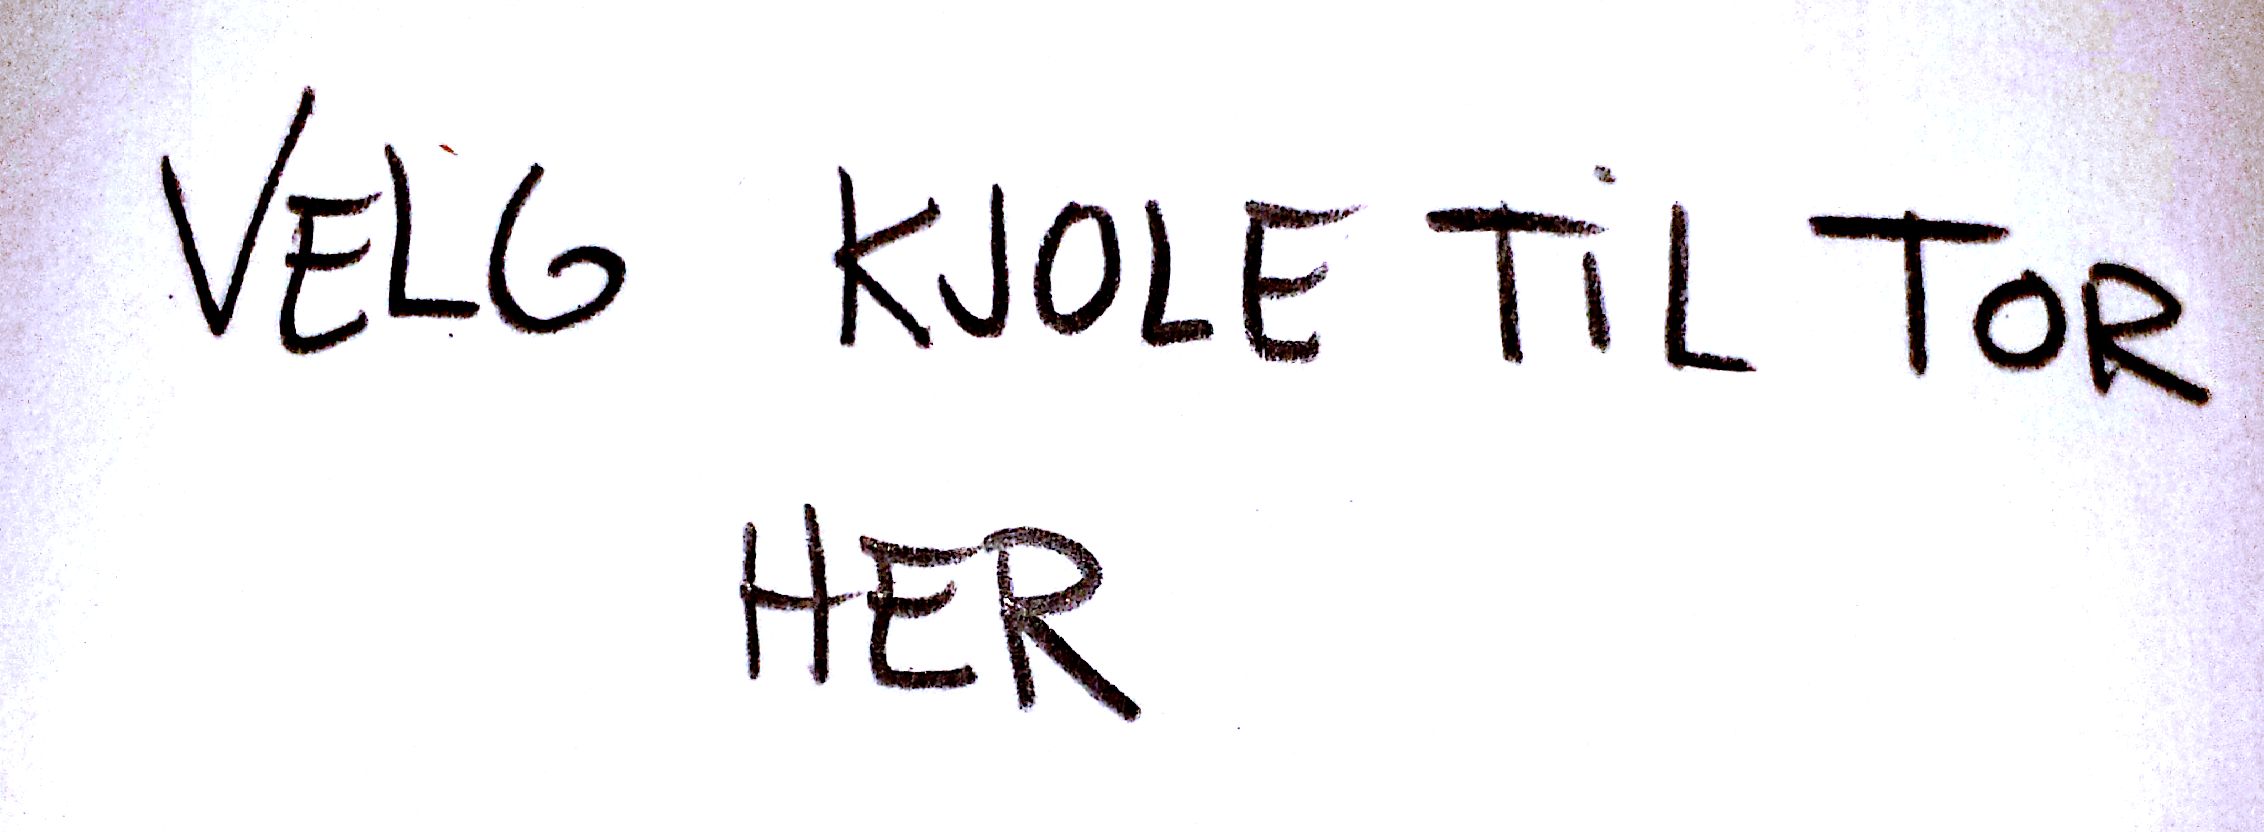 VELG KJOLE TiL TOR
HER